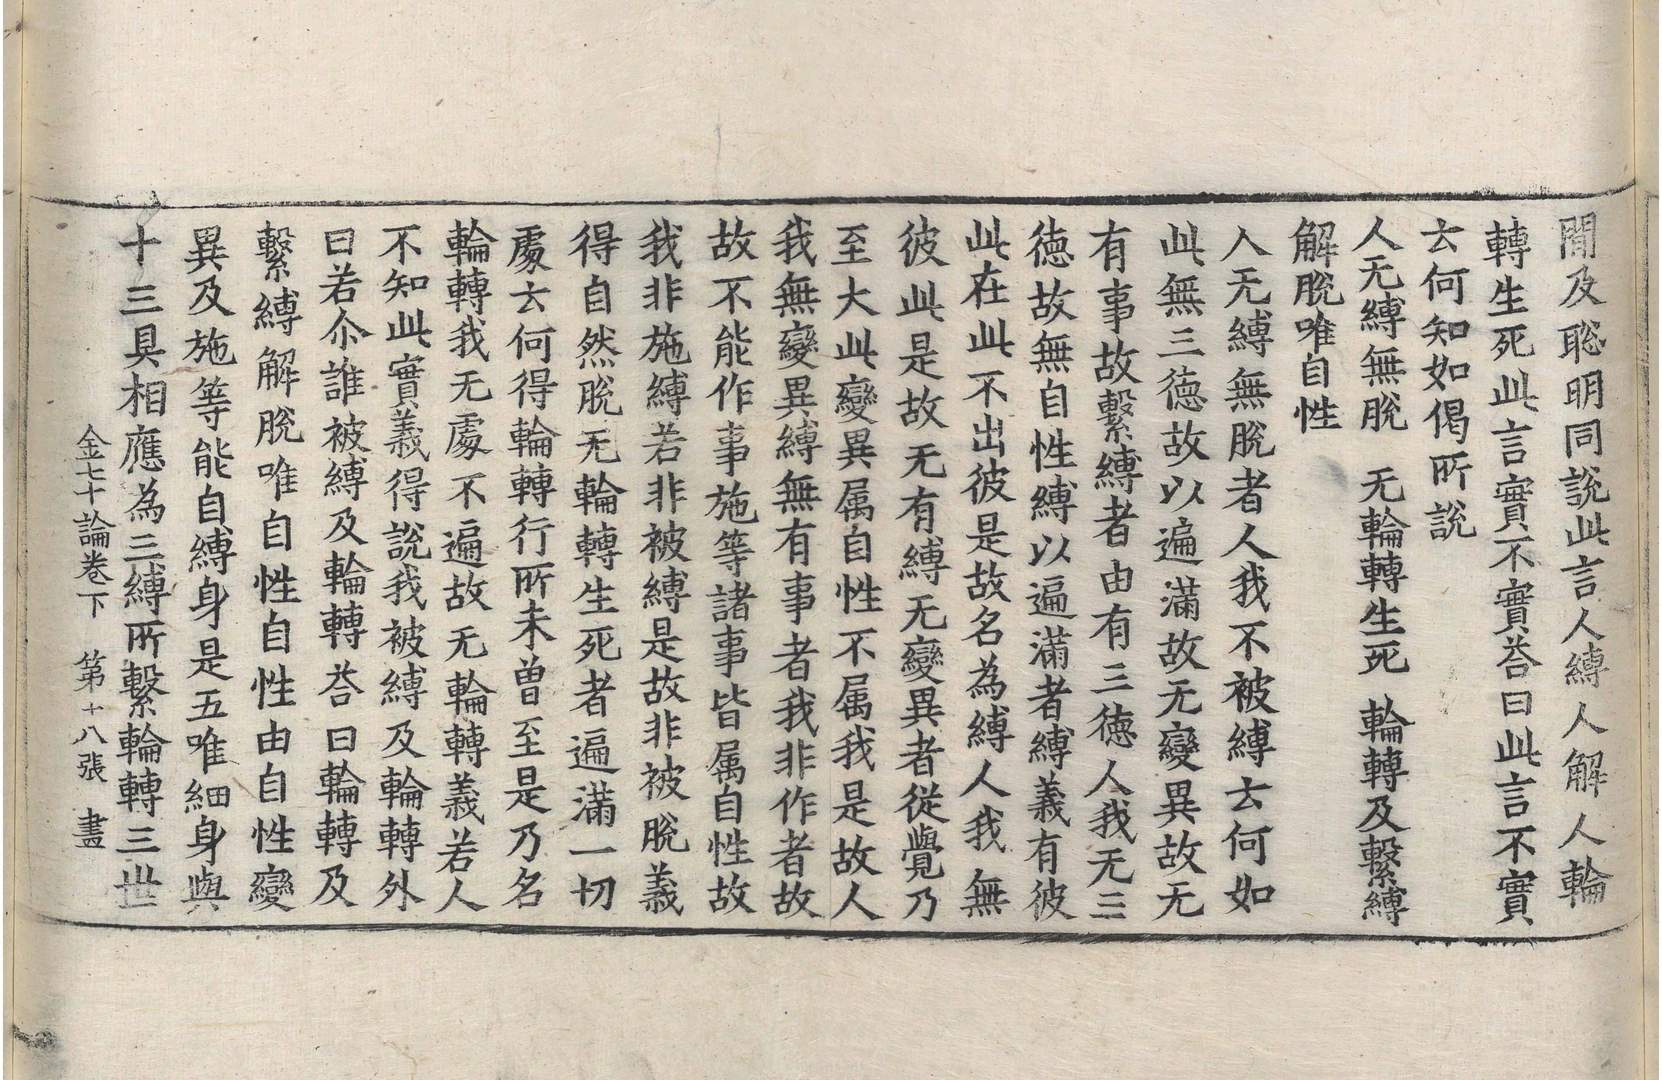 間及聡明同說此言人縛人解人輪
轉生死此言實不實荅曰此言不實
云何知如偈所說
人无縛無脫　无輪轉生死　輪轉及繫縛
解脫唯自性
人无縛無脫者人我不被縛云何如
此無三徳故以遍滿故无變異故无
有事故繫縛者由有三徳人我无三
徳故無自性縛以遍滿者縛義有彼
此在此不出彼是故名為縛人我無
彼此是故无有縛无變異者從覺乃
至大此變異属自性不属我是故人
我無變異縛無有事者我非作者故
故不能作事施等諸事皆属自性故
我非施縛若非被縛是故非被脫義
得自然脫无輪轉生死者遍滿一切
處云何得輪轉行所未曾至是乃名
輪轉我无處不遍故无輪轉義若人
不知此實義得說我被縛及輪轉外
曰若尒誰被縛及輪轉荅曰輪轉及
繫縛解脫唯自性自性由自性變
異及施等能自縛身是五唯細身與
十三具相應為三縛所繫輪轉三世
金七十論卷下　第十八張　盡